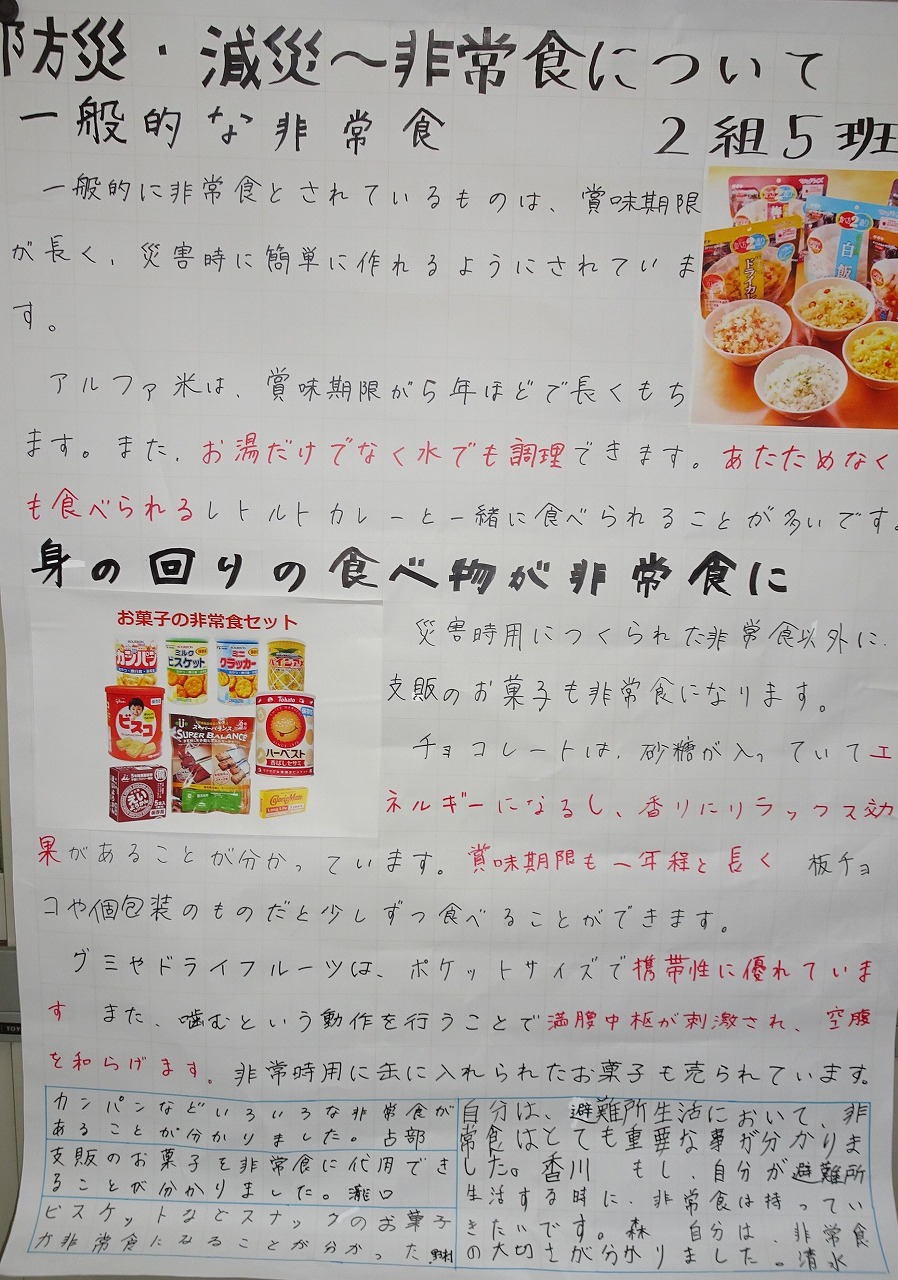 防災・減災～非常食について
一般的な非常食
2組5班
一般的に非常食とされているものは、賞味期限
が長く、災害時に簡単に作れるようにされていま
す。
アルファ米は、賞味期限が5年ほどで長くもち
ます。また、お湯だけでなく水でも調理できます。あたためなく
も食べられるレトルトカレーと一緒に食べられることが多いです。
白飯
ドライカレー
身の回りの食べ物が非常食に
お菓子の非常食セット
カンパン
ミルク
ビスケット
ミニ
クラッカー
glico
ビスコ
SUPER BALANCE
Tohato
ハーベスト
香ばしセサミ
えいようかん
災害時用につくられた非常食以外に、
支販のお菓子も非常食になります。
チョコレートは、砂糖が入っていてエ
ネルギーになるし、香りにリラックス効
果があることが分かっています。賞味期限も一年程と長く 板チョ
コや個包装のものだと少しずつ食べることができます。
グミやドライフルーツは、ポケットサイズで携帯性に優れていま
す また、噛むという動作を行うことで満腹中枢が刺激され、空腹
を和らげます。非常時用に缶に入れられたお菓子も売られています。
カンパンなどいろいろな非常食が
あることが分かりました。占部
支販のお菓子を非常食に代用でき
ることが分かりました。瀧口
ビスケットなどスナックのお菓子
が非常食になることが分かった 野村
自分は、避難所生活において、非
常食はとても重要な事が分かりま
した。香川 もし、自分が避難所
生活する時に、非常食は持ってい
きたいです。森 自分は、非常食
の大切さが分かりました。清水